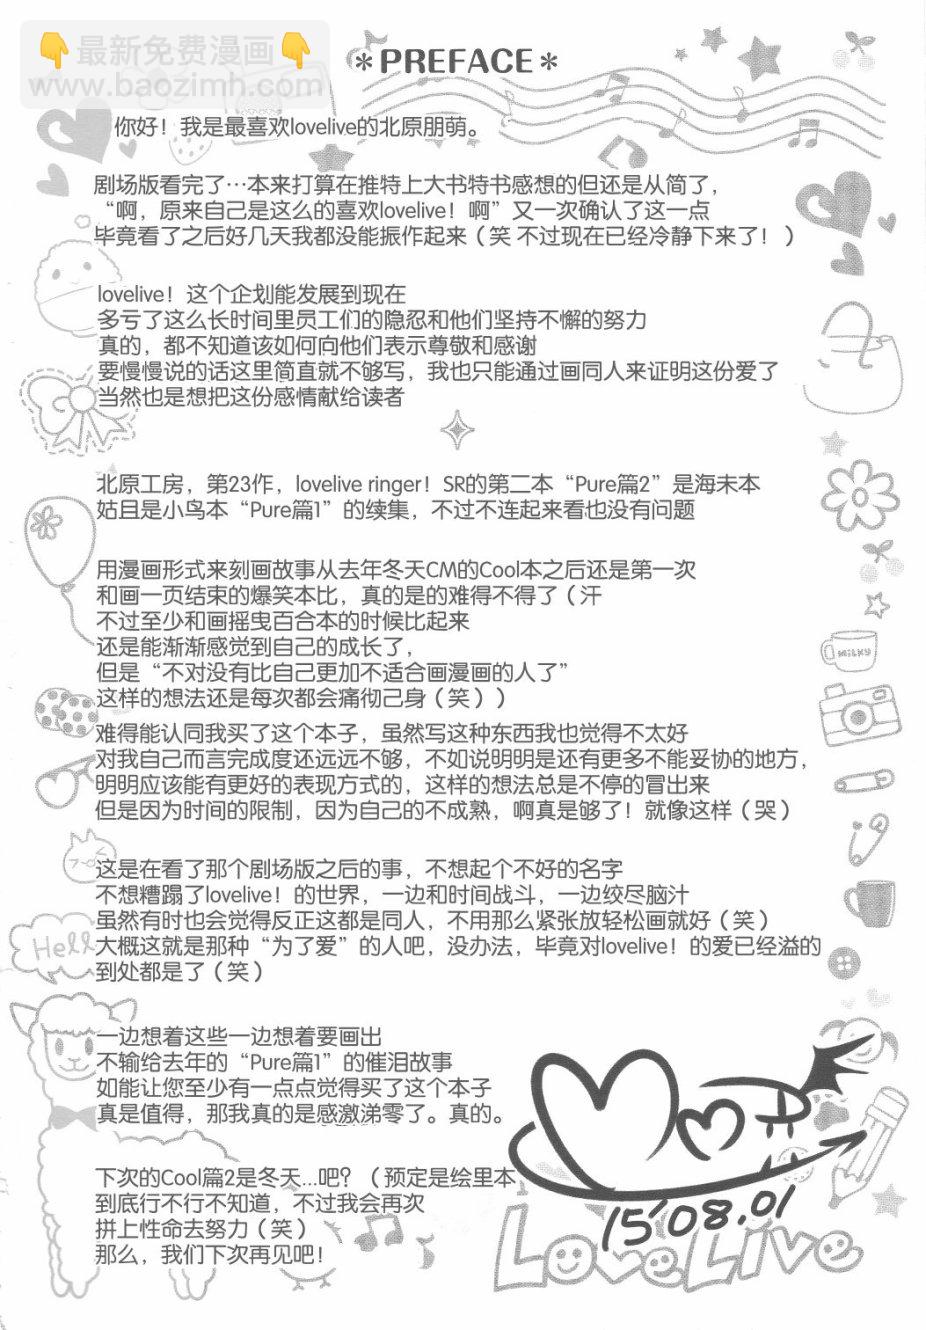 👇最新免费漫画👇
www.baozimh.com
*PREFACE*
你好！我是最喜欢lovelive的北原朋萌。
剧场版看完了…本来打算在推特上大书特书感想的但还是从简了，
“啊，原来自己是这么的喜欢lovelive！啊”又一次确认了这一点
毕竟看了之后好几天我都没能振作起来（笑 不过现在已经冷静下来了！）
lovelive！这个企划能发展到现在
多亏了这么长时间里员工们的隐忍和他们坚持不懈的努力
真的，都不知道该如何向他们表示尊敬和感谢
要慢慢说的话这里简直就不够写，我也只能通过画同人来证明这份爱了
当然也是想把这份感情献给读者
北原工房，第23作，lovelive ringer！SR的第二本“Pure篇2”是海未本
姑且是小鸟本“Pure篇1”的续集，不过不连起来看也没有问题
用漫画形式来刻画故事从去年冬天CM的Cool本之后还是第一次
和画一页结束的爆笑本比，真的是的难得不得了（汗
不过至少和画摇曳百合本的时候比起来
还是能渐渐感觉到自己的成长了，
但是“不对没有比自己更加不适合画漫画的人了”
这样的想法还是每次都会痛彻己身（笑））
难得能认同我买了这个本子，虽然写这种东西我也觉得不太好
对我自己而言完成度还远远不够，不如说明明是还有更多不能妥协的地方，
明明应该能有更好的表现方式的，这样的想法总是不停的冒出来
但是因为时间的限制，因为自己的不成熟，啊真是够了！就像这样（哭）
这是在看了那个剧场版之后的事，不想起个不好的名字
不想糟蹋了lovelive！的世界，一边和时间战斗，一边绞尽脑汁
虽然有时也会觉得反正这都是同人，不用那么紧张放轻松画就好（笑）
大概这就是那种“为了爱”的人吧，没办法，毕竟对lovelive！的爱已经溢的
到处都是了（笑）
Hell
MiLKY
一边想着这些一边想着要画出
不输给去年的“Pure篇1”的催泪故事
如能让您至少有一点点觉得买了这个本子
真是值得，那我真的是感激涕零了。真的。
下次的Cool篇2是冬天...吧？（预定是绘里本
到底行不行不知道，不过我会再次
拼上性命去努力（笑）
那么，我们下次再见吧！
15'08.01
LoveLive